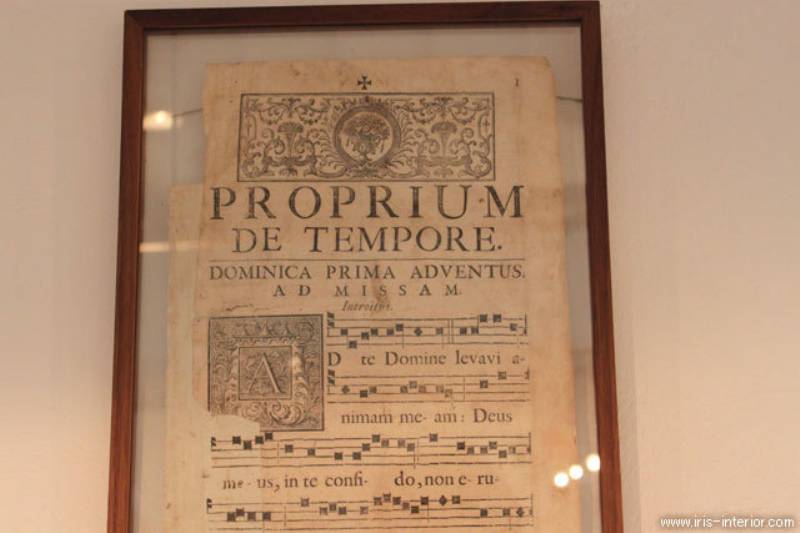 1
PROPRIUM
DE TEMPORE.
DOMINICA PRIMA ADVENTUS.
AD MISSAM.
Introitus.
AD te Domine levavi a-
nimam me- am: Deus
me- us, in te confi- do, non e- ru-
www.iris-interior.com